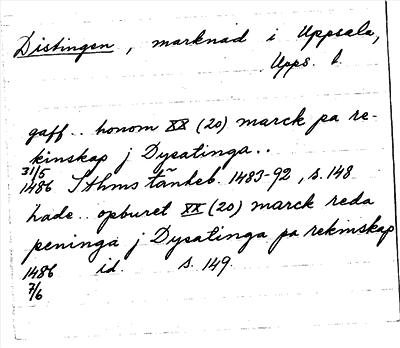 Distingen, marknad i Uppsala,
Upps. l.
gaff.. honom XX (20) marck pa re-
kinskap j Dysatinga..
31/5
1486 Sthms tänkeb. 1483-92, s. 148
hade.. opburet XX (20) marck reda
peninga j Dysatinga pa rekinskap
1486 id. s. 149.
7/6